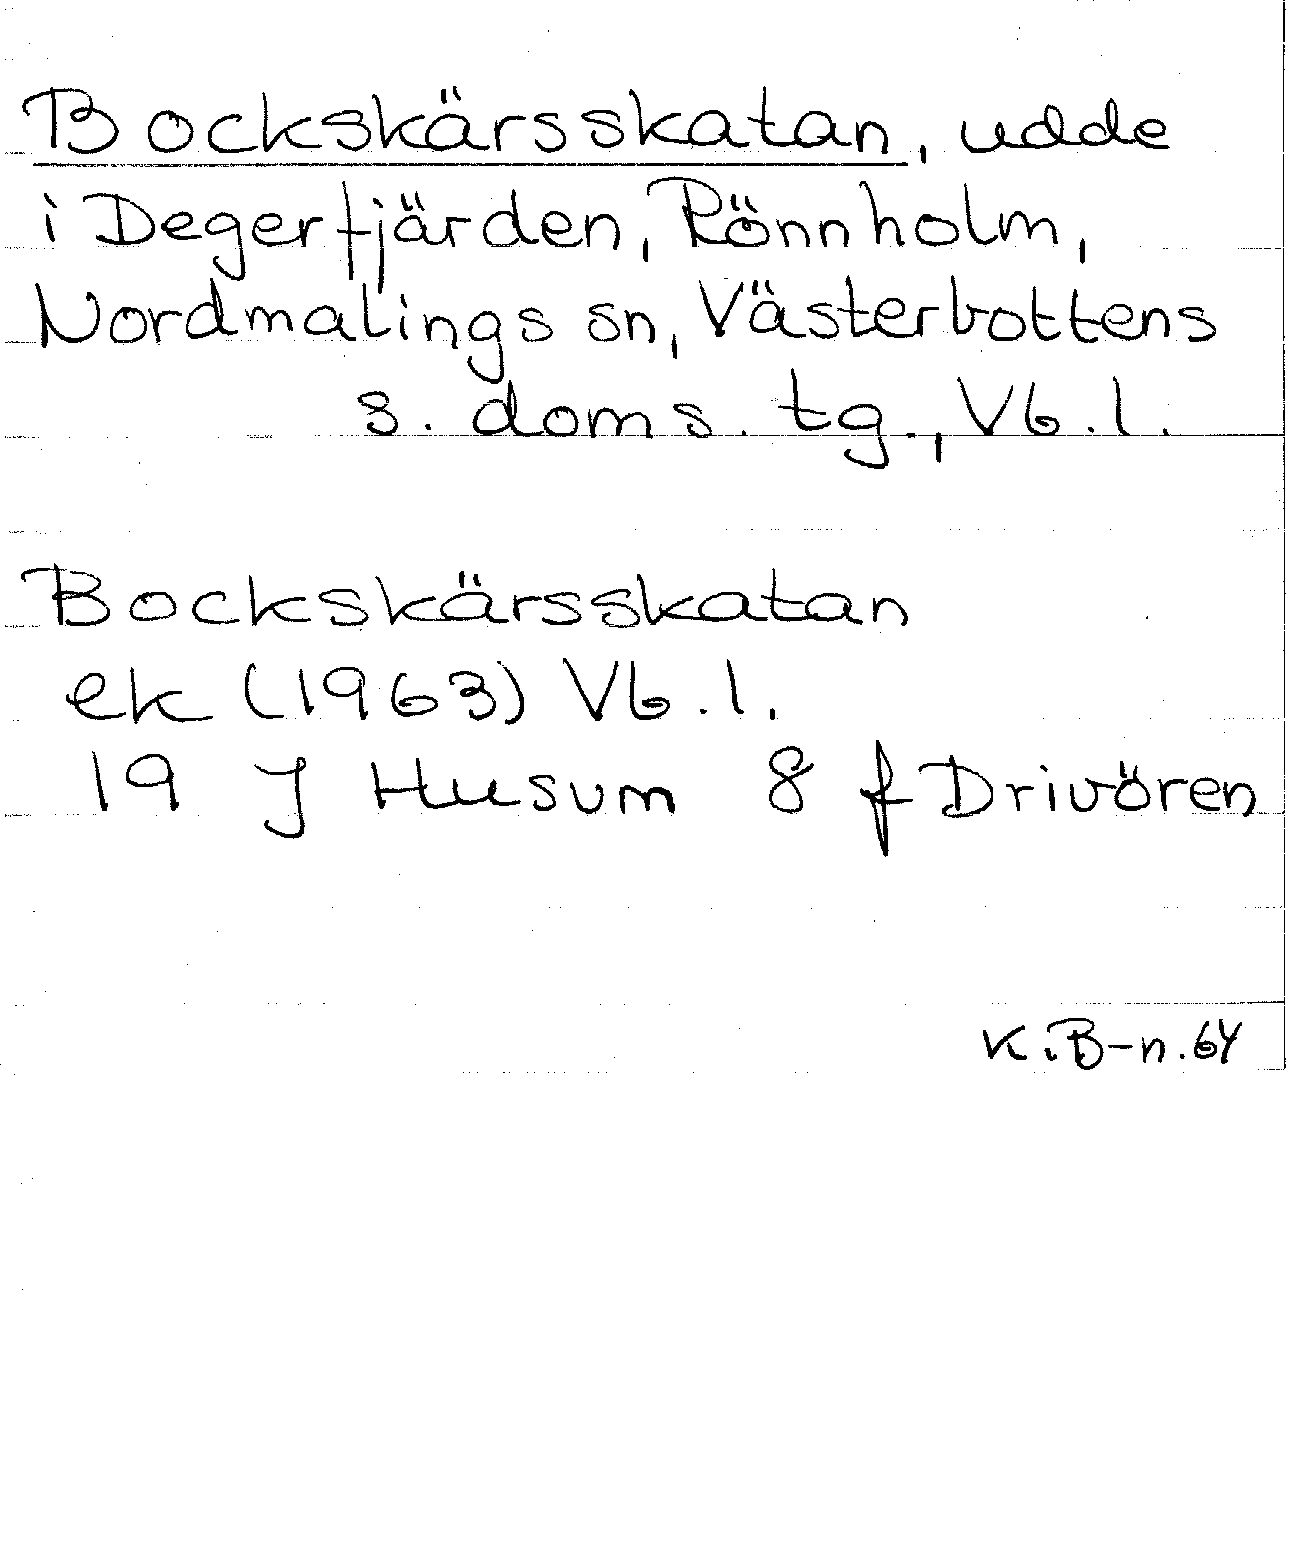 Bockskärsskatan, udde
i Degerfjärden, Rönnholm,
Nordmalings sn, Västerbottens
s. doms. tg., Vb. l.
Bockskärsskatan
ek (1963) Vb. l.
19 J Husum 8 f Drivören
K.B-n. 64